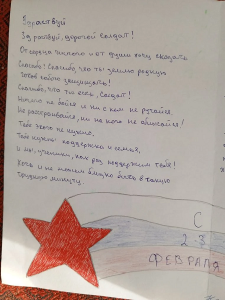 Здраствуй
Здраствуй, дорогой солдат!
От сердца чистого и от души хочу сказать
Спасибо! Спасибо, что ты землю родную
Готов собою защищать!
Спасибо, что ты есть Солдат!
Ничего не бойся и ни с кем не ругайся.
Не расстраивайся, ни на кого не обижайся!
Тебе этого не нужно.
Тебе нужна поддержка и семья,
И мы, ученики, как раз поддержим тебя!
Хоть и не можем близко быть в такую
Трудную минуту.
С
23
ФЕВРАЛЯ